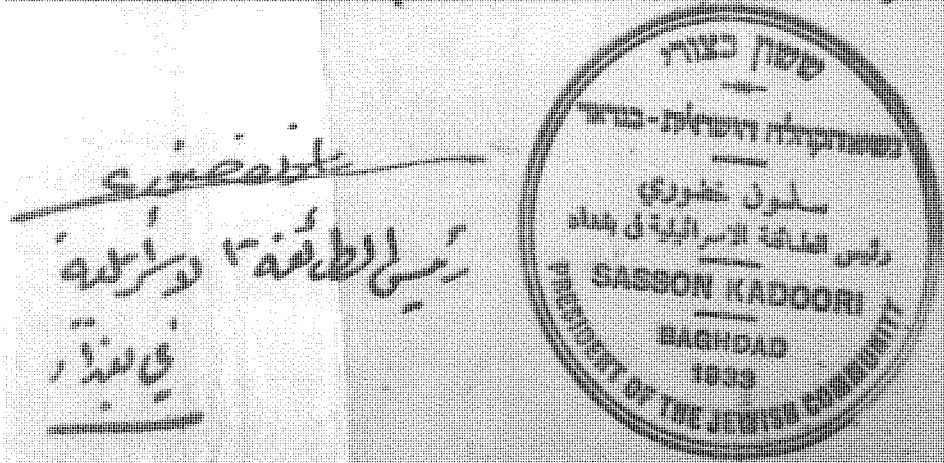 رئيس الطائفة الاسرائيلية
في بغداد
ששון כצורי
הישראלית-בגדאד
ساسون خضوري
رئيس الطائفة الاسرائيلية في بغداد
SASSON KADOORI
BAGHDAD
1933
PRESIDENT OF THE JEWISH COMMUNITY